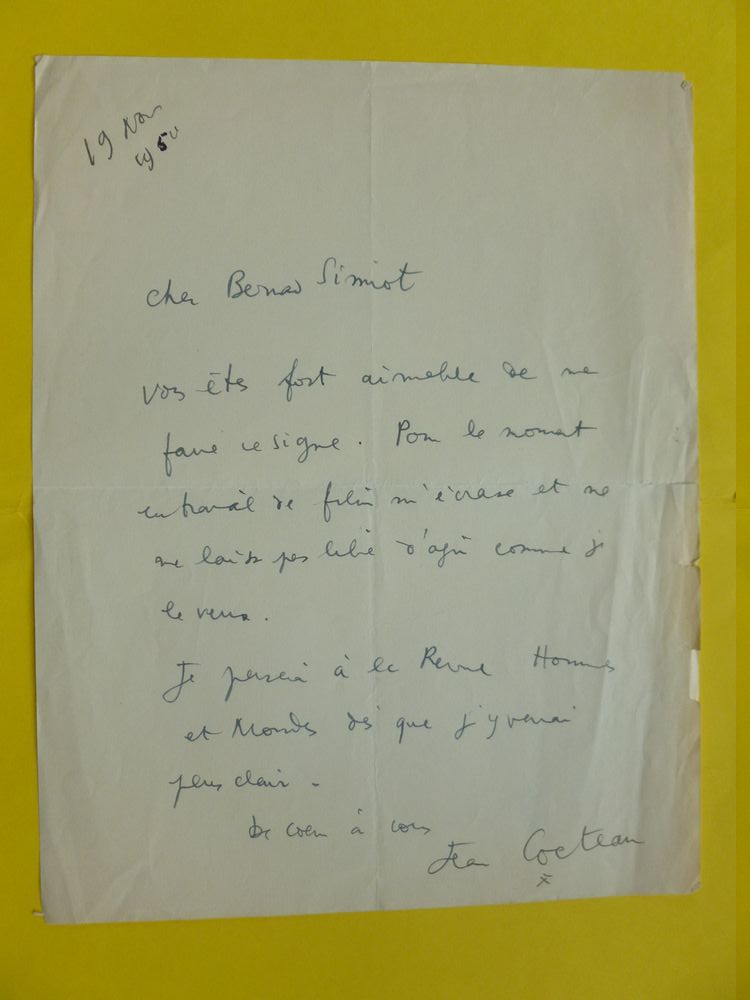 19 Nov
1950
Cher Bernard Simiot
Vous êtes fort aimable de me
faire ce signe. Pour le moment
un travail de film m'écrase et ne
me laisse pas libre d'agir comme je
le veux.
Je penserai à la Revue Hommes
et Mondes dès que j'y verrai
plus clair.
De coeur à vous
Jean Cocteau